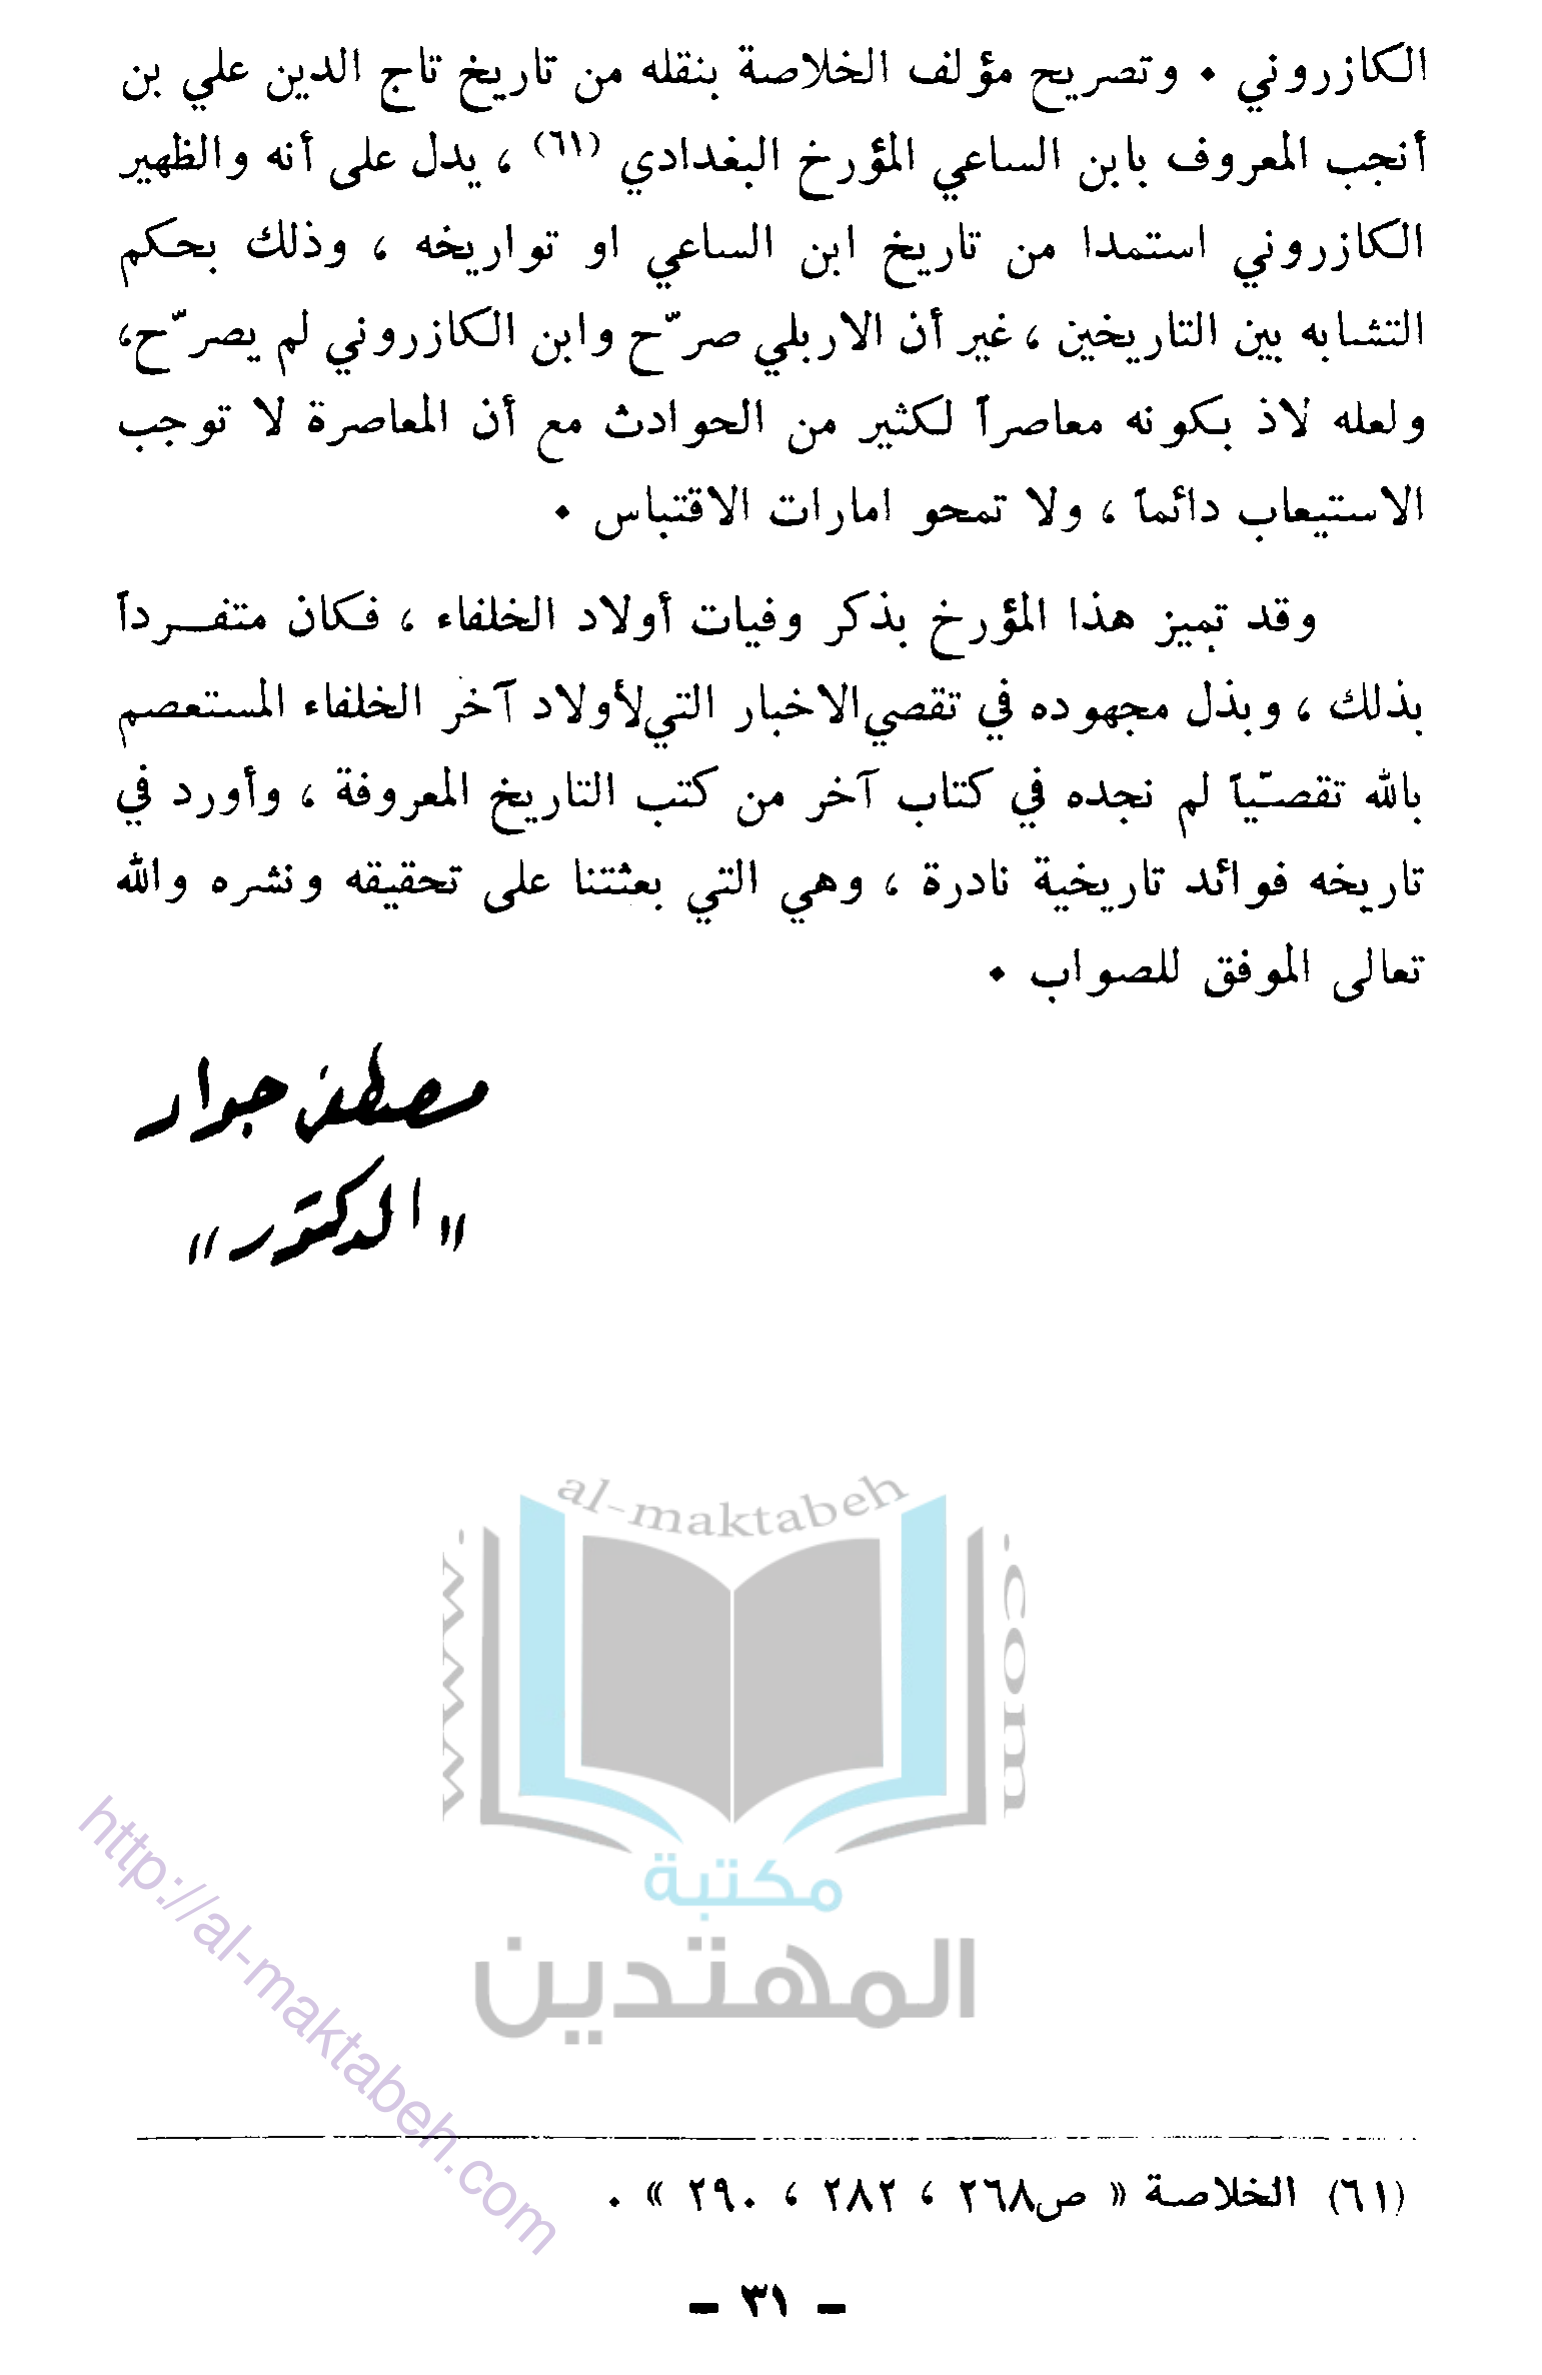 الكازروني . وتصريح مؤلف الخلاصة بنقله من تاريخ تاج الدين علي بن
أنجب المعروف بابن الساعي المؤرخ البغدادي (٦١) ، يدل على أنه والظهير
الكازروني استمدا من تاريخ ابن الساعي او تواريخه ، وذلك بحكم
التشابه بين التاريخين ، غير أن الاربلي صرّح وابن الكازروني لم يصرّح،
ولعله لاذ بكونه معاصراً لكثير من الحوادث مع أن المعاصرة لا توجب
الاستيعاب دائماً ، ولا تمحو امارات الاقتباس .
وقد تميز هذا المؤرخ بذكر وفيات أولاد الخلفاء ، فكان متفـرداً
بذلك ، وبذل مجهوده في تقصي الاخبار التي لأولاد آخر الخلفاء المستعصم
بالله تقصّياً لم نجده في كتاب آخر من كتب التاريخ المعروفة ، وأورد في
تاريخه فوائد تاريخية نادرة ، وهي التي بعثتنا على تحقيقه ونشره والله
تعالى الموفق للصواب .
مصطفى جواد
"الدكتور"
al-maktabeh
www.
.com
مكتبة
المهتدين
http://al-maktabeh.com
(٦١) الخلاصة « ص٢٦٨ ، ٢٨٢ ، ٢٩٠ » .
- ٣١ -